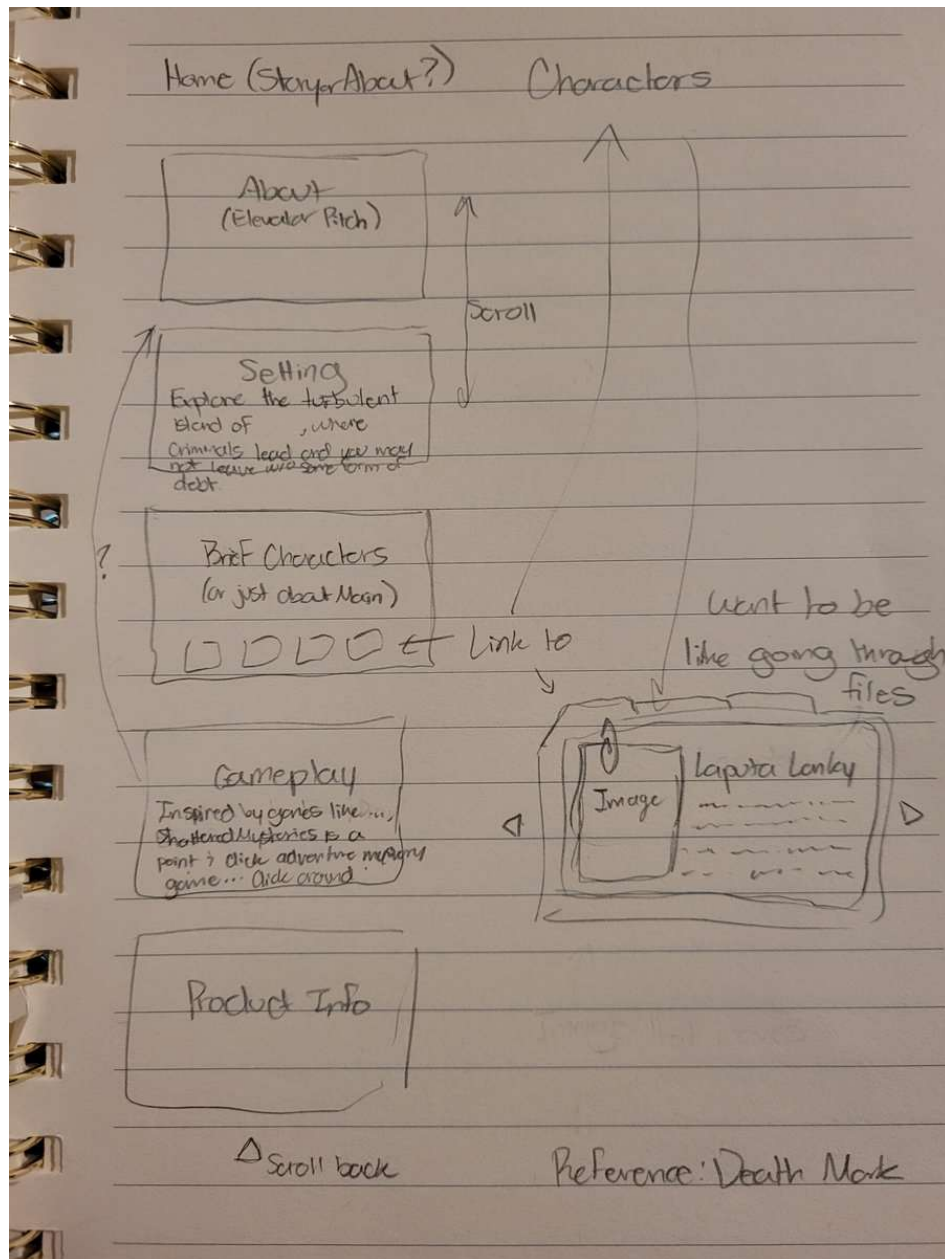 Home (Story or About?)
Characters
About
(Elevator Pitch)
Scroll
Setting
Explore the turbulent
island of , where
Criminals lead and you may
not leave w/o some form of
debt.
?
Brief Characters
(or just about Main)
Link to
want to be
like going through
files
Gameplay
Inspired by games like...,
Shattered Mysteries is a
point & click adventure mystery
game... Click around
Image
Laputa Lanky
Product Info
Scroll back
Reference: Death Mark